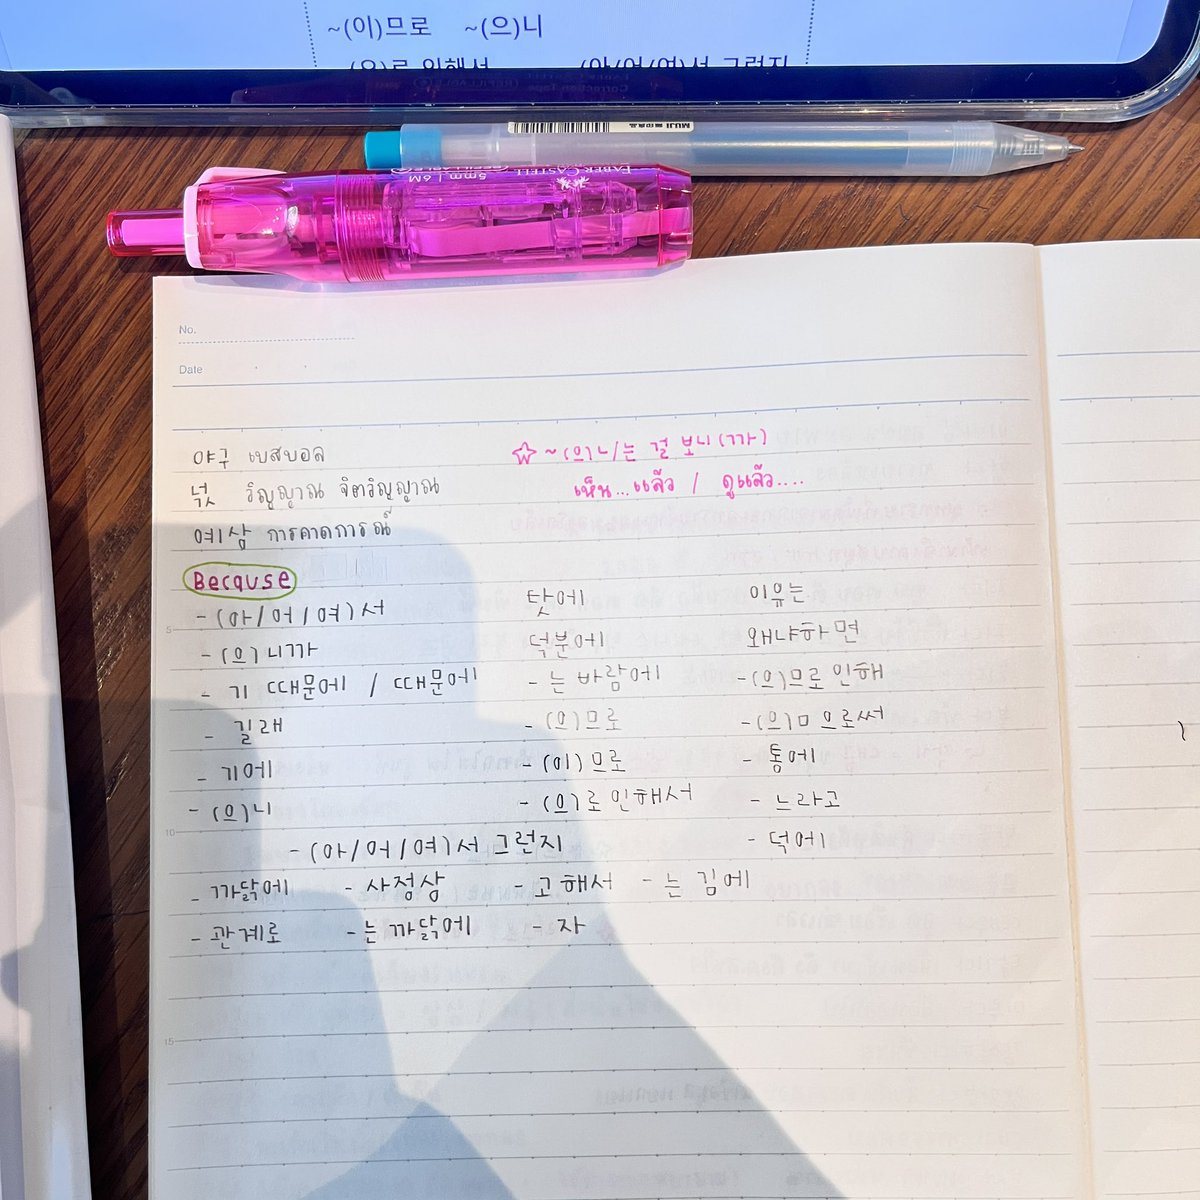 ~(이)므로 ~(으)니
MUJI 無印良品
FABER-CASTELL
5mm | 6M
No.
Date
야구 เบสบอล
넋 วิญญาณ จิตวิญญาณ
예상 การคาดการณ์
☆ ~ (으)ㄴ/는 걸 보니(까)
เห็น...แล้ว / ดูแล้ว....
Because
- (아/어/여)서
- (으)니까
- 기 때문에 / 때문에
- 길래
- 기에
- (으)니
- (아/어/여)서 그런지
- 까닭에 - 사정상 - 고 해서 - 는 김에
- 관계로 - 는 까닭에 - 자
탓에
덕분에
- 는 바람에
- (으)므로
- (이)므로
- (으)로 인해서
이유는
왜냐하면
- (으)므로 인해
- (으)ㅁ으로써
- 통에
- 느라고
- 덕에
5
10
15